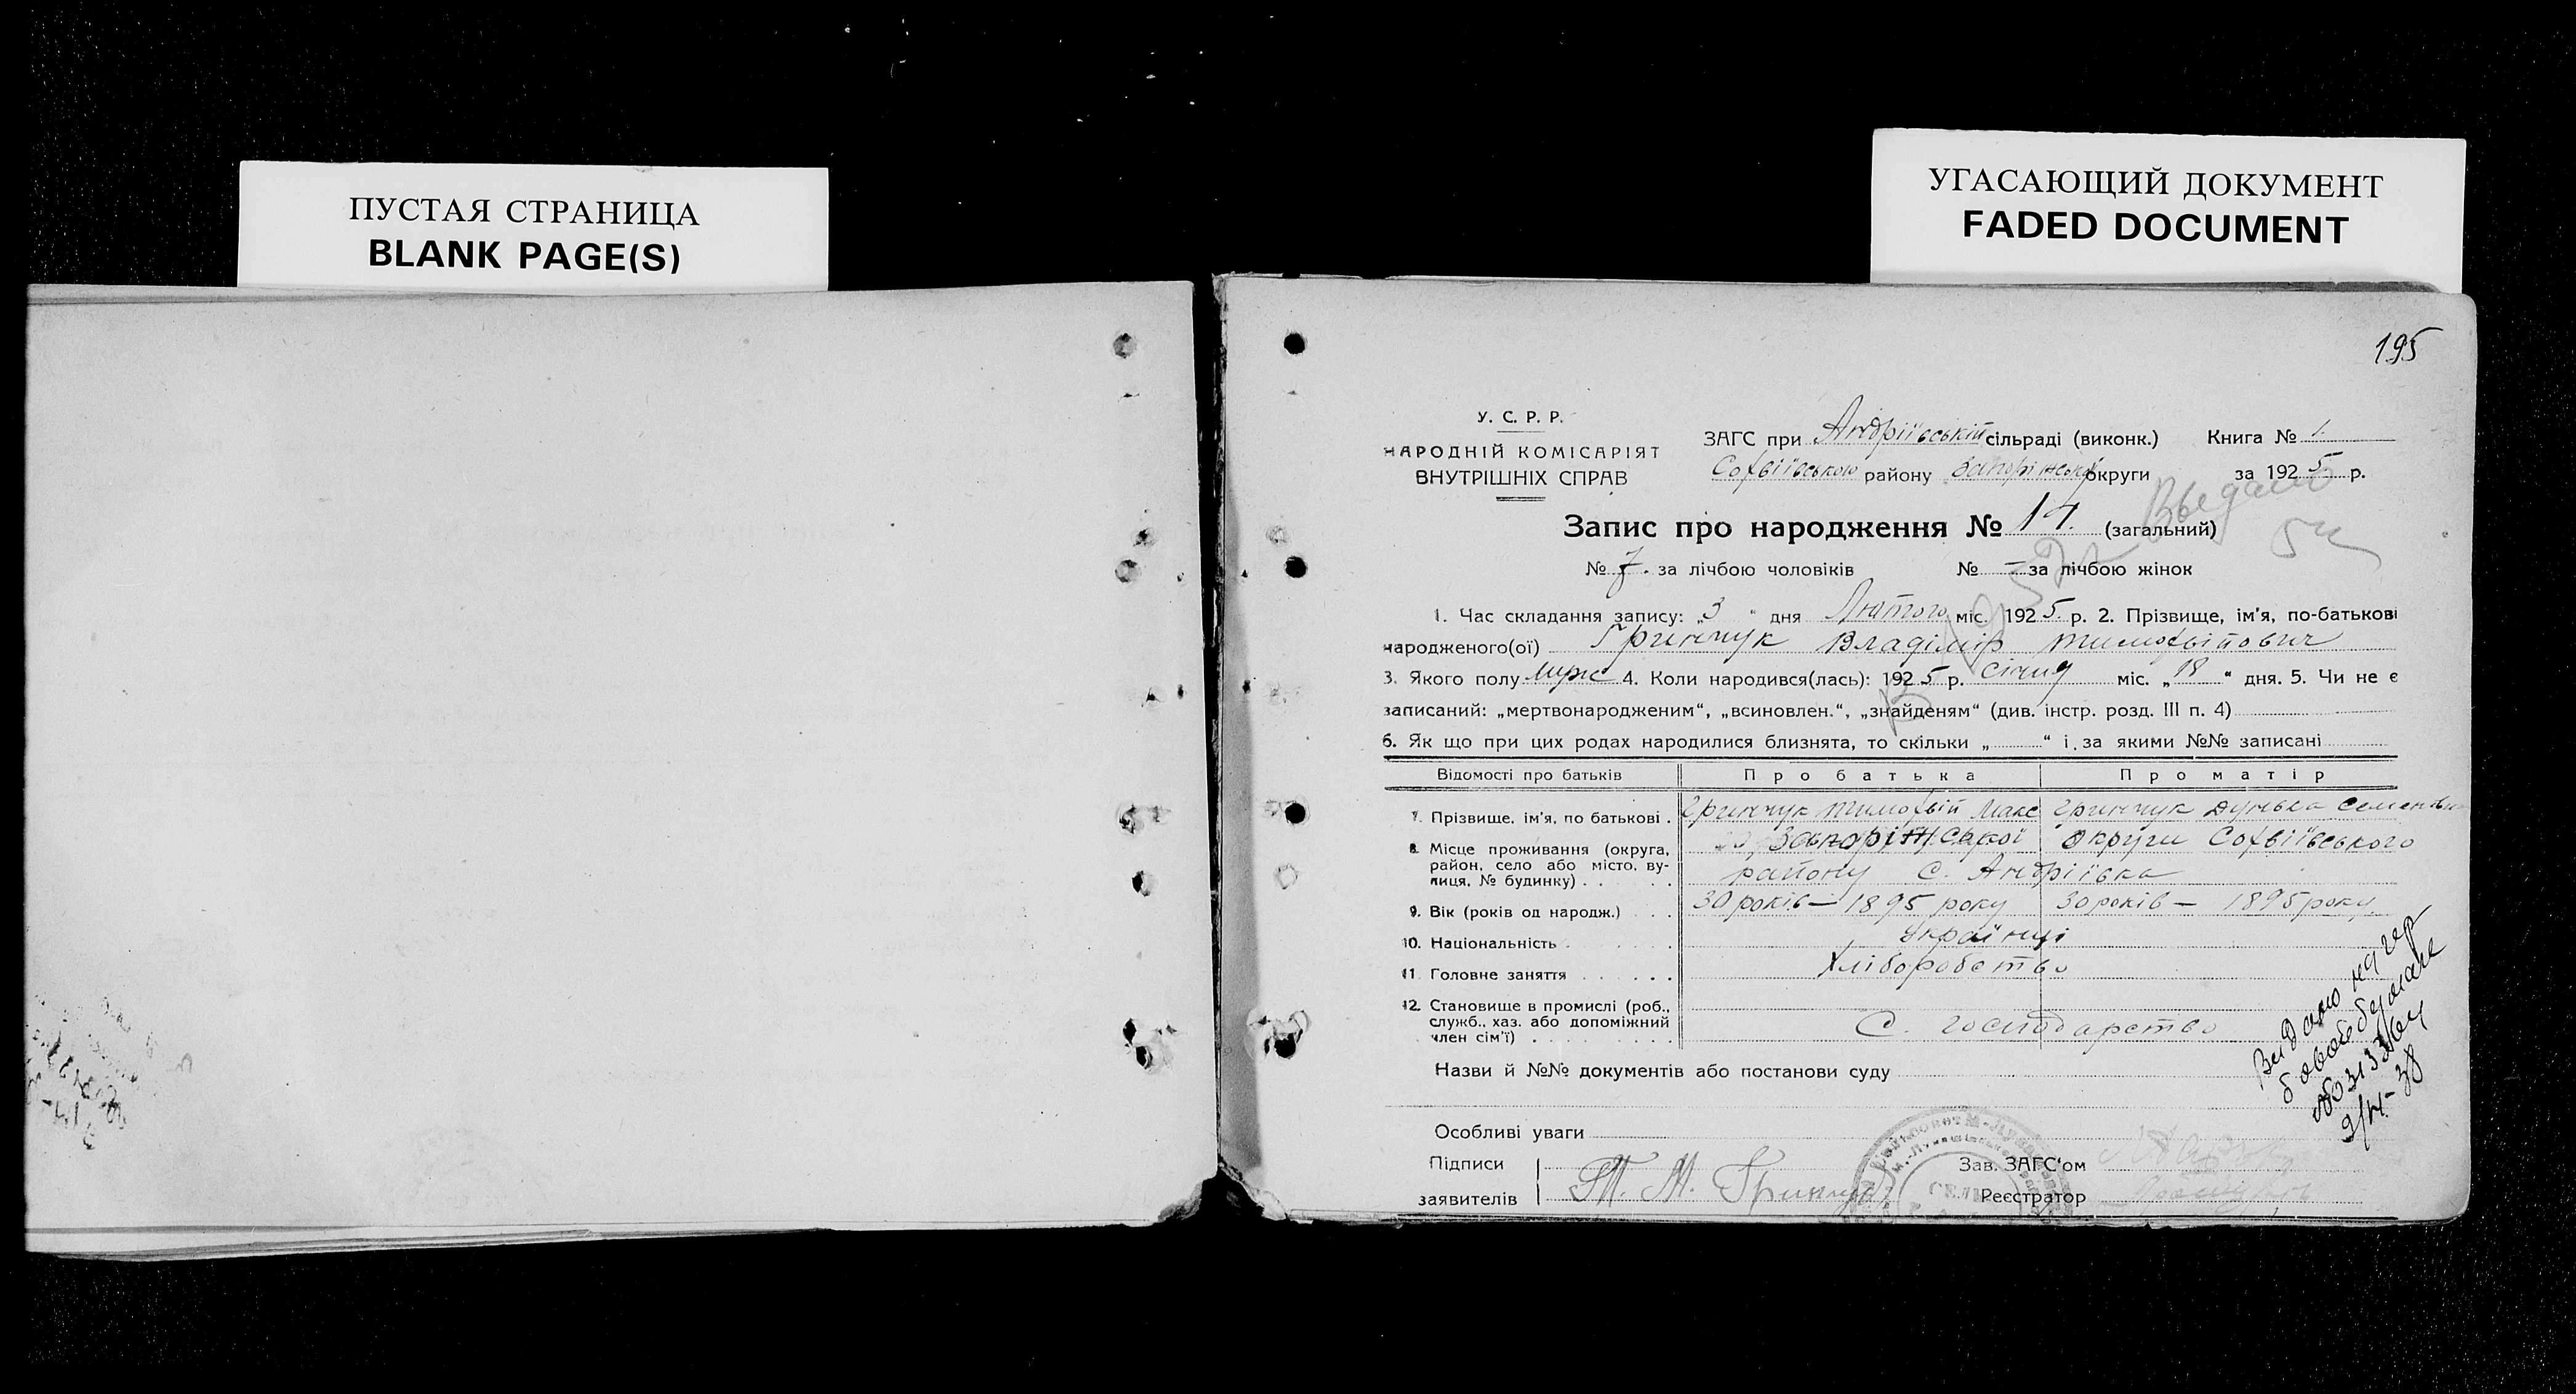 ПУСТАЯ СТРАНИЦА
BLANK PAGE(S)
УГАСАЮЩИЙ ДОКУМЕНТ
FADED DOCUMENT
195
У. С. Р. Р.
НАРОДНІЙ КОМІСАРІЯТ
ВНУТРІШНІХ СПРАВ
ЗАГС при Андріївській сільраді (виконк.) Книга № 1
Софіївською району Запоріжської округи за 1925 р.
Запис про народження № 17. (загальний)
№ 7. за лічбою чоловіків № — за лічбою жінок
1. Час складання запису: „3“ дня Лютого міс. 1925 р. 2. Прізвище, ім'я, по-батькові
народженого(ої) Гринчук Владімір Тимофвійович
3. Якого полу муж 4. Коли народився(лась): 1925 р. січня міс. „18“ дня. 5. Чи не є
записаний: „мертвонародженим“, „всиновлен.“, „знайденям“ (див. інстр. розд. III п. 4)
6. Як що при цих родах народилися близнята, то скільки „ “ і за якими №№ записані
Відомості про батьків Про батька Про матір
7. Прізвище, ім'я, по батькові . Гринчук Тимофвій Макс Гринчук Дунька Семеновна
8. Місце проживання (округа, район, село або місто, вулиця, № будинку) . . Запоріжської округи Софвіївського
району С. Андріївка
9. Вік (років од народж.) . . 30 років — 1895 року 30 років — 1895 року
10. Національність . Українці
11. Головне заняття . . . . . Хліборобство
12. Становище в промислі (роб., служб., хаз. або допоміжний член сім'ї) . С. господарство
Назви й №№ документів або постанови суду
Особливі уваги
Підписи
заявителів Т. М. Гринчук
Зав. ЗАГС'ом
Реєстратор
Выдано
Видано